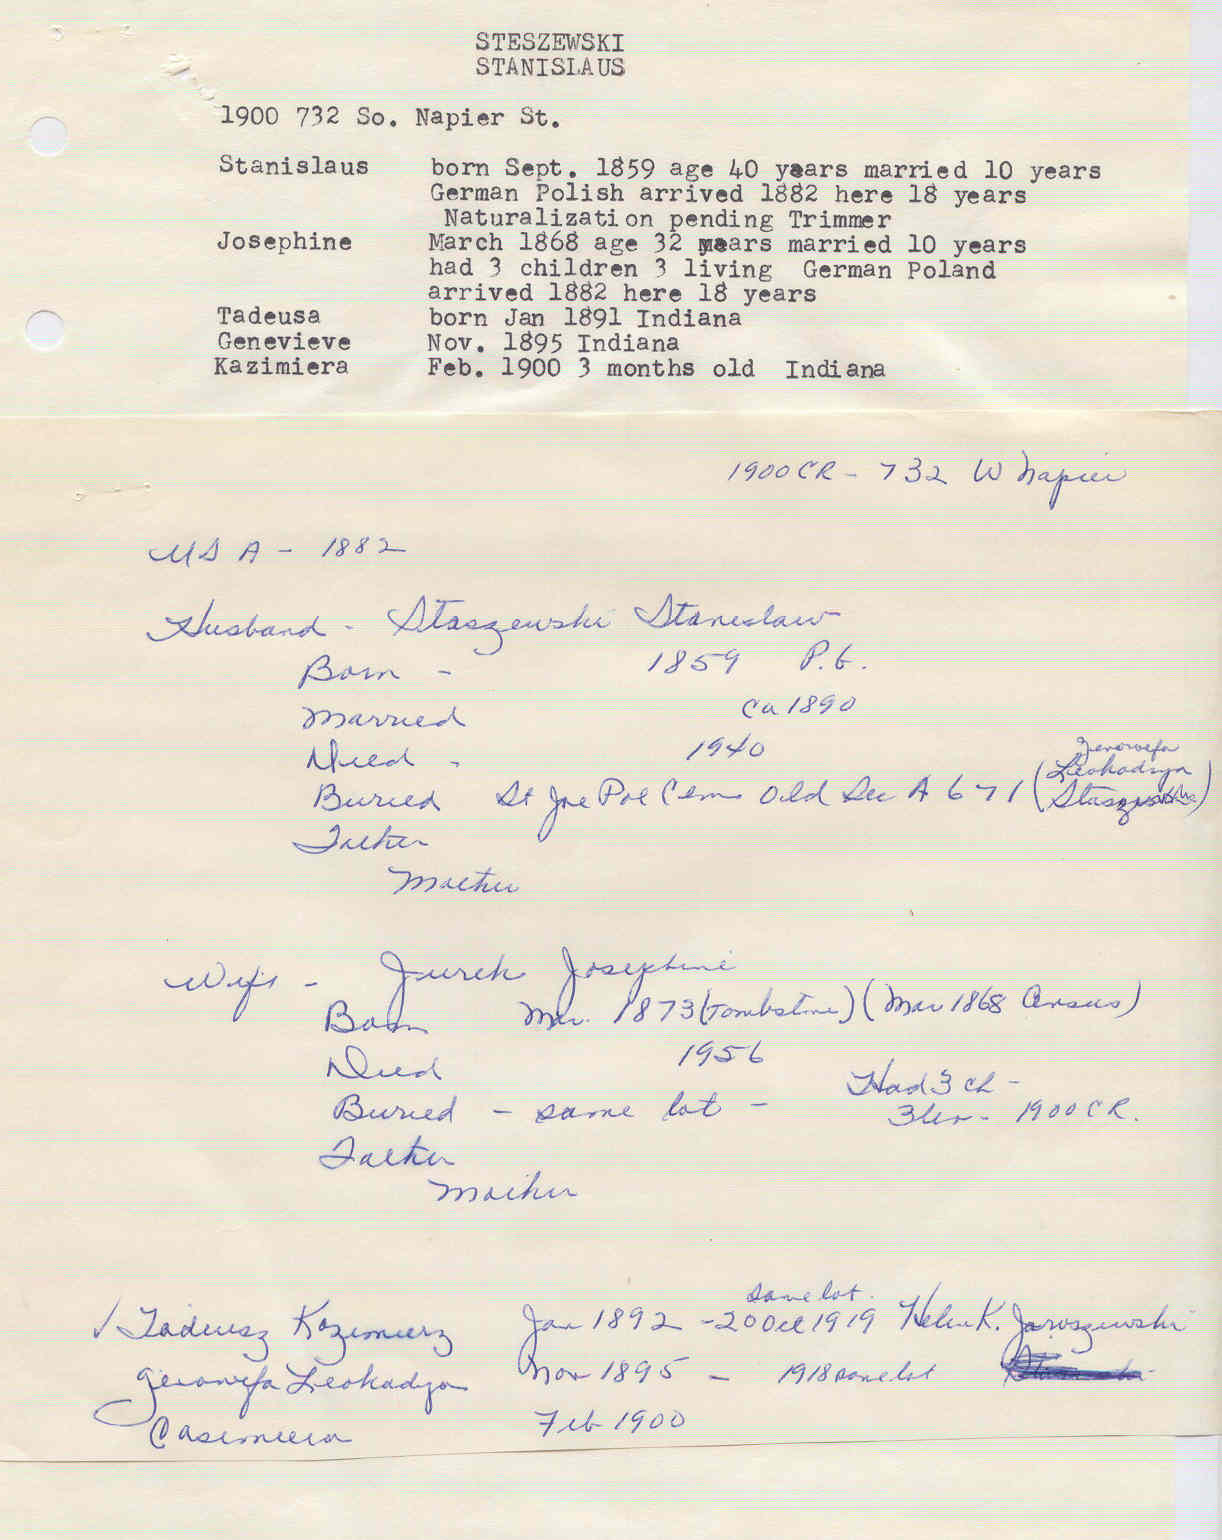 STESZEWSKI
STANISLAUS
1900 732 So. Napier St.
Stanislaus born Sept. 1859 age 40 years married 10 years
German Polish arrived 1882 here 18 years
Naturalization pending Trimmer
Josephine March 1868 age 32 years married 10 years
had 3 children 3 living German Poland
arrived 1882 here 18 years
Tadeusa born Jan 1891 Indiana
Genevieve Nov. 1895 Indiana
Kazimiera Feb. 1900 3 months old Indiana
1900 CR - 732 W Napier
USA - 1882
Husband - Staszewski Stanislaw
Born - 1859 P.G.
Married ca 1890
Died - 1940
Genowefa
Leokadya
Buried St Joe Pol Cem Old Sec A 671 (Staszewska)
Father
Mother
Wife - Jurek Josephine
Born Mar. 1873 (Tombstone) (Mar 1868 Census)
Died 1956
Had 3 ch -
Buried - same lot - 3 liv - 1900 CR.
Father
Mother
same lot.
✓ Tadeusz Kazimierz Jan 1892 - 20 Oct 1919 Helen K. Jaroszewski
Genowefa Leokadya Nov 1895 - 1918 same lot
Casimiera Feb 1900